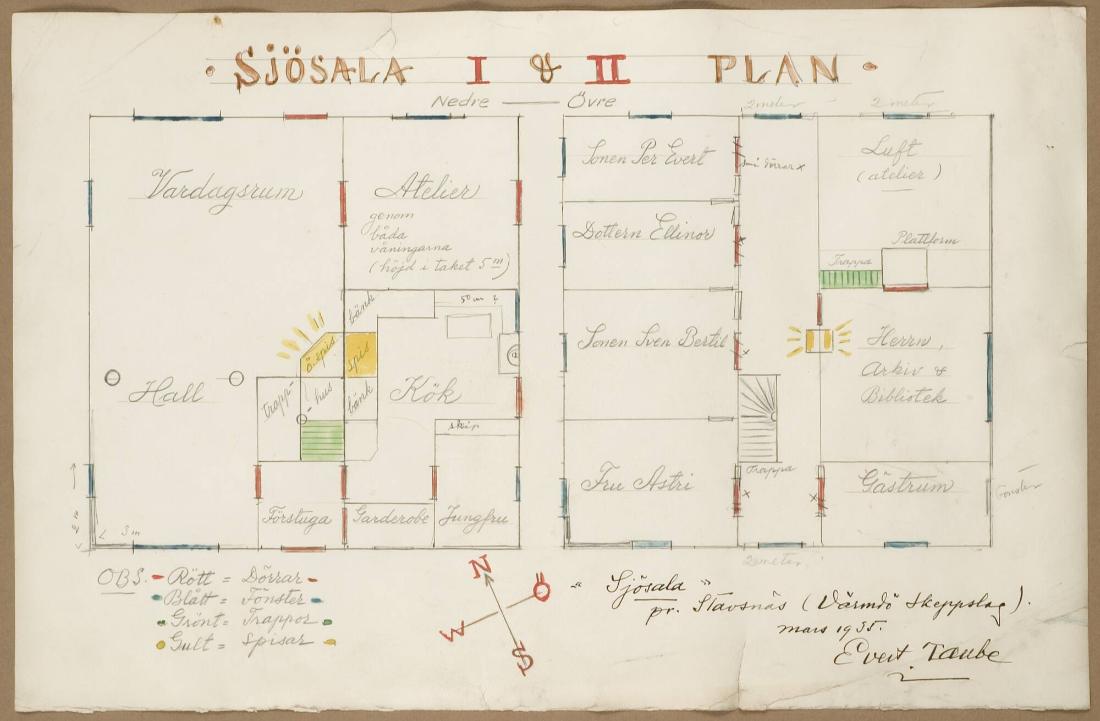 · SJÖSALA I & II PLAN ·
Nedre — Övre
2 meter
2 meter
Vardagsrum
Atelier
genom
båda
våningarna
(höjd i taket 5 m)
bänk
50 cm ?
ö. spis
spis
trapp-
hus
bänk
Kök
Hall
skåp
2 m
3 m
Förstuga
Garderobe
Jungfru
Sonen Per Evert
små dörrar x
Luft
(atelier)
Dottern Ellinor
Plattform
Trappa
Sonen Sven Bertil
Herrn,
Arkiv &
Bibliotek
Fru Astri
Trappa
Gästrum
Fönster
2 meter
OBS. Rött = Dörrar
Blått = Fönster
Grönt = Trappor
Gult = Spisar
N
Ö
W
S
"Sjösala"
pr. Stavsnäs (Värmdö Skeppslag).
mars 1935.
Evert Taube